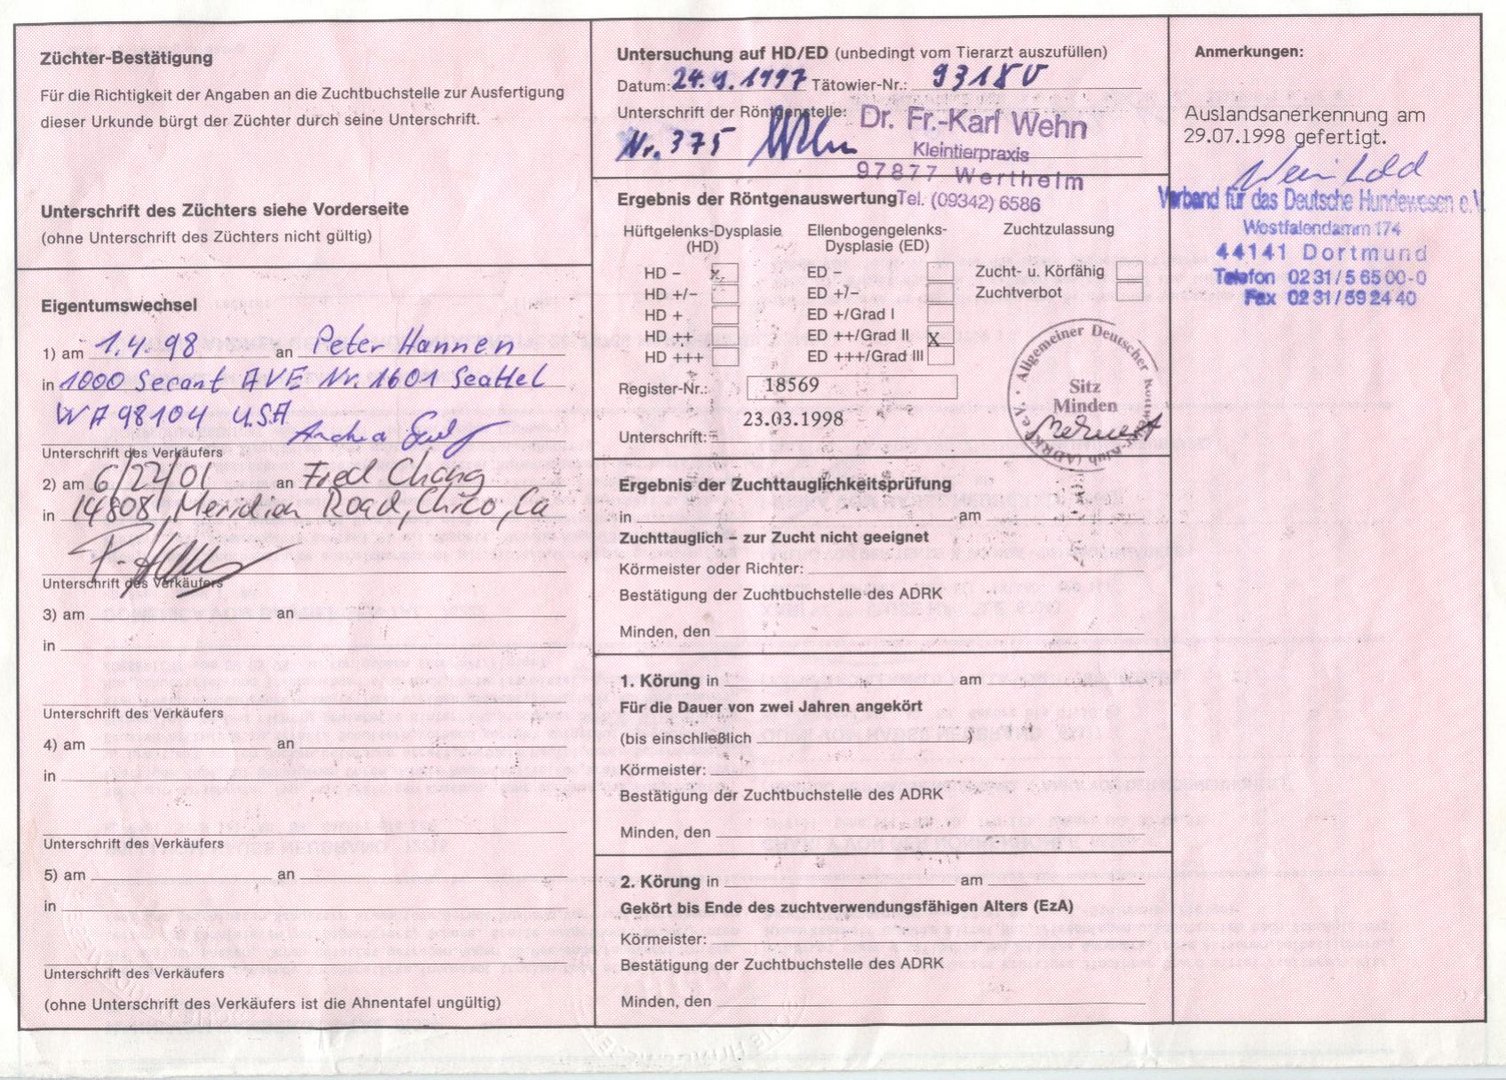 Züchter-Bestätigung
Für die Richtigkeit der Angaben an die Zuchtbuchstelle zur Ausfertigung
dieser Urkunde bürgt der Züchter durch seine Unterschrift.
Unterschrift des Züchters siehe Vorderseite
(ohne Unterschrift des Züchters nicht gültig)
Eigentumswechsel
1) am 1.4.98 an Peter Hannen
in 1000 Secant AVE Nr. 1601 Seattel
WA 98104 USA
Andrea
Unterschrift des Verkäufers
2) am 6/22/01 an Fred Chang
in 14808 Meridian Road, Chico, Ca
Unterschrift des Verkäufers
3) am an
in
Unterschrift des Verkäufers
4) am an
in
Unterschrift des Verkäufers
5) am an
in
Unterschrift des Verkäufers
(ohne Unterschrift des Verkäufers ist die Ahnentafel ungültig)
Untersuchung auf HD/ED (unbedingt vom Tierarzt auszufüllen)
Datum: 24.9.1997 Tätowier-Nr.: 93180
Unterschrift der Röntgenstelle:
Nr. 375 Wehn
Dr. Fr.-Karl Wehn
Kleintierpraxis
97877 Wertheim
Tel. (09342) 6586
Ergebnis der Röntgenauswertung
Hüftgelenks-Dysplasie Ellenbogengelenks- Zuchtzulassung
(HD) Dysplasie (ED)
HD – x ED – Zucht- u. Körfähig
HD +/– ED +/– Zuchtverbot
HD + ED +/Grad I
HD ++ ED ++/Grad II X
HD +++ ED +++/Grad III
Register-Nr.: 18569
23.03.1998
Unterschrift:
Allgemeiner Deutscher Rottweiler-Klub (ADRK) e.V.
Sitz
Minden
Ergebnis der Zuchttauglichkeitsprüfung
in am
Zuchttauglich – zur Zucht nicht geeignet
Körmeister oder Richter:
Bestätigung der Zuchtbuchstelle des ADRK
Minden, den
1. Körung in am
Für die Dauer von zwei Jahren angekört
(bis einschließlich )
Körmeister:
Bestätigung der Zuchtbuchstelle des ADRK
Minden, den
2. Körung in am
Gekört bis Ende des zuchtverwendungsfähigen Alters (EzA)
Körmeister:
Bestätigung der Zuchtbuchstelle des ADRK
Minden, den
Anmerkungen:
Auslandsanerkennung am
29.07.1998 gefertigt.
Verband für das Deutsche Hundewesen e.V.
Westfalendamm 174
44141 Dortmund
Telefon 02 31/5 65 00-0
Fax 02 31/59 24 40